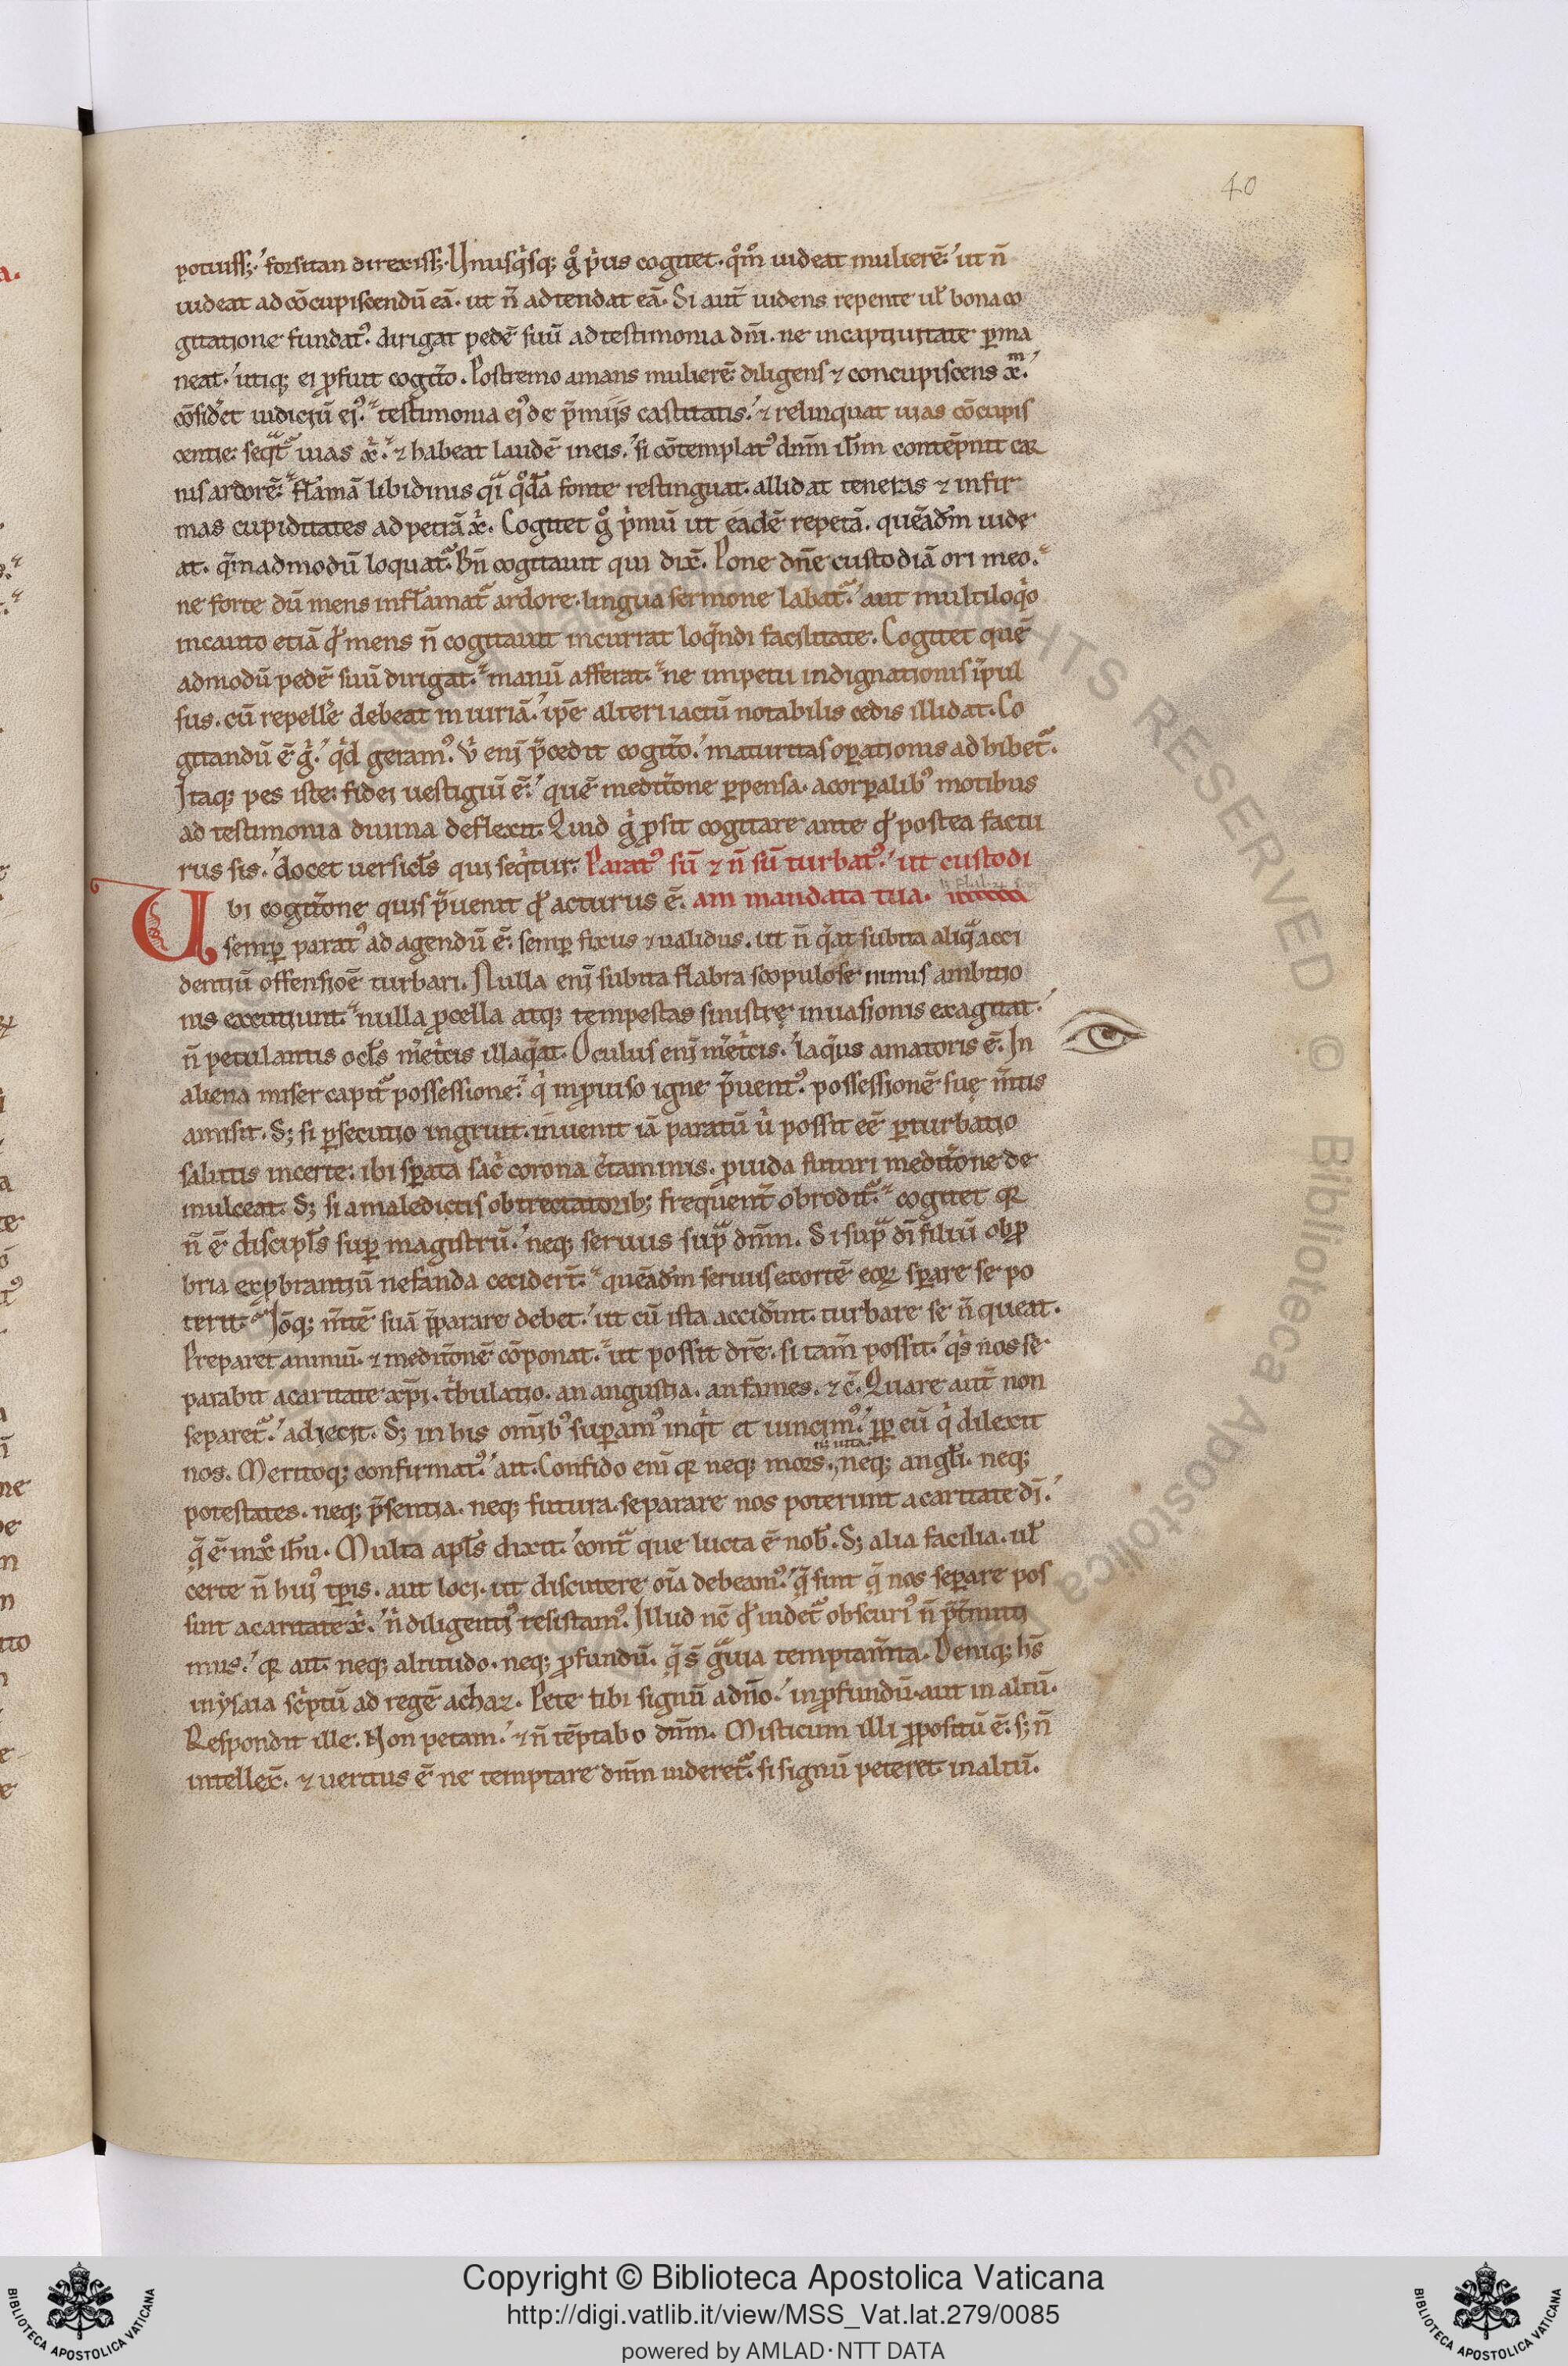 40
potuiss&; forsitan direxiss&; Unusq̇sq; gͦ pͥus cogitet. qͦmͦ uideat mulierē. ut n̄
uideat ad cōcupiscendū eā. ut n̄ adtendat eā. Si aut̄ uidens repente ul̄ bona co
gitatione fundatꝰ. dirigat pedē suū ad testimonia dn̄i. ne in captiuitate ꝑma
neat. utiq; ei ꝓfuit cogit̄o. Postremo amans mulierē diligens ⁊ concupiscens x̄m.
cōsideret iudiciū eiꝰ. testimonia eiꝰ de p̄mijs castitatis. ⁊ relinquat uias cōcupis
centie. seqͣtᷣ uias x̄ᷓ. ⁊ habeat laudē in eis. si cōtemplatꝰ dn̄m ih̄m contēpnit car
nis ardorē. flāmā libidinis qͣi qͦdā fonte restinguat. allidat teneras ⁊ infir
mas cupiditates ad petrā x̄ͥ. Cogitet gͦ pͥmū ut eādē repetā. queādm̄ uide
at. qm̄admodū loquatᷣ. Bn̄ cogitauit qui dix̄. Pone dn̄e custodiā ori meo.
ne forte dū mens inflāmatᷣ ardore. lingua sermone labatᷣ. aut multiloqͥo
incauto etiā qd̄ mens n̄ cogitauit incurrat loqn̄di facilitate. Cogitet quē
admodū pedē suū dirigat. manū afferat. ne impetu indignationis īpul
sus. cū repellere debeat iniuriā. ip̄e alteri ictū notabilis cedis illidat. Co
gitandū ē gͥ. qͥd geramꝰ. Vͥ eni p̄cedit cogit̄o. maturitas oꝑationis adhibetᷣ.
Itaq; pes iste. fidei uestigiū ē. quē medit̄one ꝑpensa. a corꝑalibꝰ motibus
ad testimonia diuina deflexit. Quid gͥ ꝓsit cogitare ante qd̄ postea factu
rus sis. docet uersicl̄s qui seqͥtur. Paratꝰ sū ⁊ n̄ sū turbatꝰ. ut custodi
Ubi cogit̄one quis p̄uenit qd̄ acturus ē. am mandata tua.
semꝑ paratꝰ ad agendū ē. semꝑ fixus ⁊ ualidus. ut n̄ q̄at subita aliqͣ acci
dentiū offensiōe turbari. Nulla eni subita flabra scopulose nimis ambitio
nis excutiunt. nulla ꝓcella atq; tempestas sinistrę inuasionis exagitat.
n̄ petulantis ocl̄s m̄etͥcis illaq̄at. Oculus eni m̄etͥcis. laq̄us amatoris ē. In
aliena miser capitᷣ possessione. qͥ inꝓuiso igne p̄uentꝰ. possessionē suę m̄tis
amisit. S; si ꝑsecutio ingruit. inuenit iā paratū uͥ possit eē ꝑturbatio
salutis incerte. ibi sꝑata sac̄ corona c̄taminis. ꝓuida futuri medit̄one de
mulceat. S; si a maledictis obtrectatorib; frequent̄ obroditᷣ. cogitet qꝛ
n̄ ē discipl̄s suꝑ magistrū. neq; seruus supͣ dn̄m. Si supͣ dī filiū obꝓ
bria exꝓbrantiū nefanda cecidert̄. queādm̄ seruus exortē eoꝝ sꝑare se po
terit. Iōq; m̄tē suā p̄parare debet. ut cū ista accid̄int. turbare se n̄ queat.
Preparet animū. ⁊ medit̄onē cōponat. ut possit dr̄e. si tam̄ possit. qͥs nos se
parabit a caritate xp̄i. tͥbulatio. an angustia. an fames. ⁊ c̄. Quare aut̄ non
separetᷣ. adiecit. S; in his om̄ibꝰ suꝑamꝰ inqͥt et uincimꝰ. ꝓp̄ eū qͥ dilexit
nos. Meritoq; confirmatꝰ. ait. Confido eni qꝛ neq; mors. neq; uita. neq; angl̄i. neq;
potestates. neq; p̄sentia. neq; futura. separare nos poterunt a caritate dī.
q̄ ē in x̄ͦ ih̄u. Multa apl̄s dixit. contͣ que lucta ē nob̄. S; alia facilia. ul̄
certe n̄ huiꝰ tꝑis. aut loci. ut discutere oīa debeamꝰ. q̄ sint q̄ nos seꝑare pos
sint a caritate x̄ͥ. n̄ diligentiꝰ resistamꝰ. Illud nc̄ qd̄ uidetᷣ obscuriꝰ n̄ p̄tmitti
mus. qꝛ ait. neq; altitudo. neq; ꝓfundū. q̄ s̄ gͣuia temptam̄ta. Deniq; hs̄
in ysaia scͥptū ad regē achaz. Pete tibi signū a dn̄o. in ꝓfundū. aut in altū.
Respondit ille. Non petam. ⁊ n̄ tēptabo dn̄m. Misticum illi ꝓpositū ē. s; n̄
intellex̄. ⁊ ueritus ē ne temptare dn̄m uideretᷣ. si signū peteret in altū.
Copyright © Biblioteca Apostolica Vaticana
http://digi.vatlib.it/view/MSS_Vat.lat.279/0085
powered by AMLAD·NTT DATA